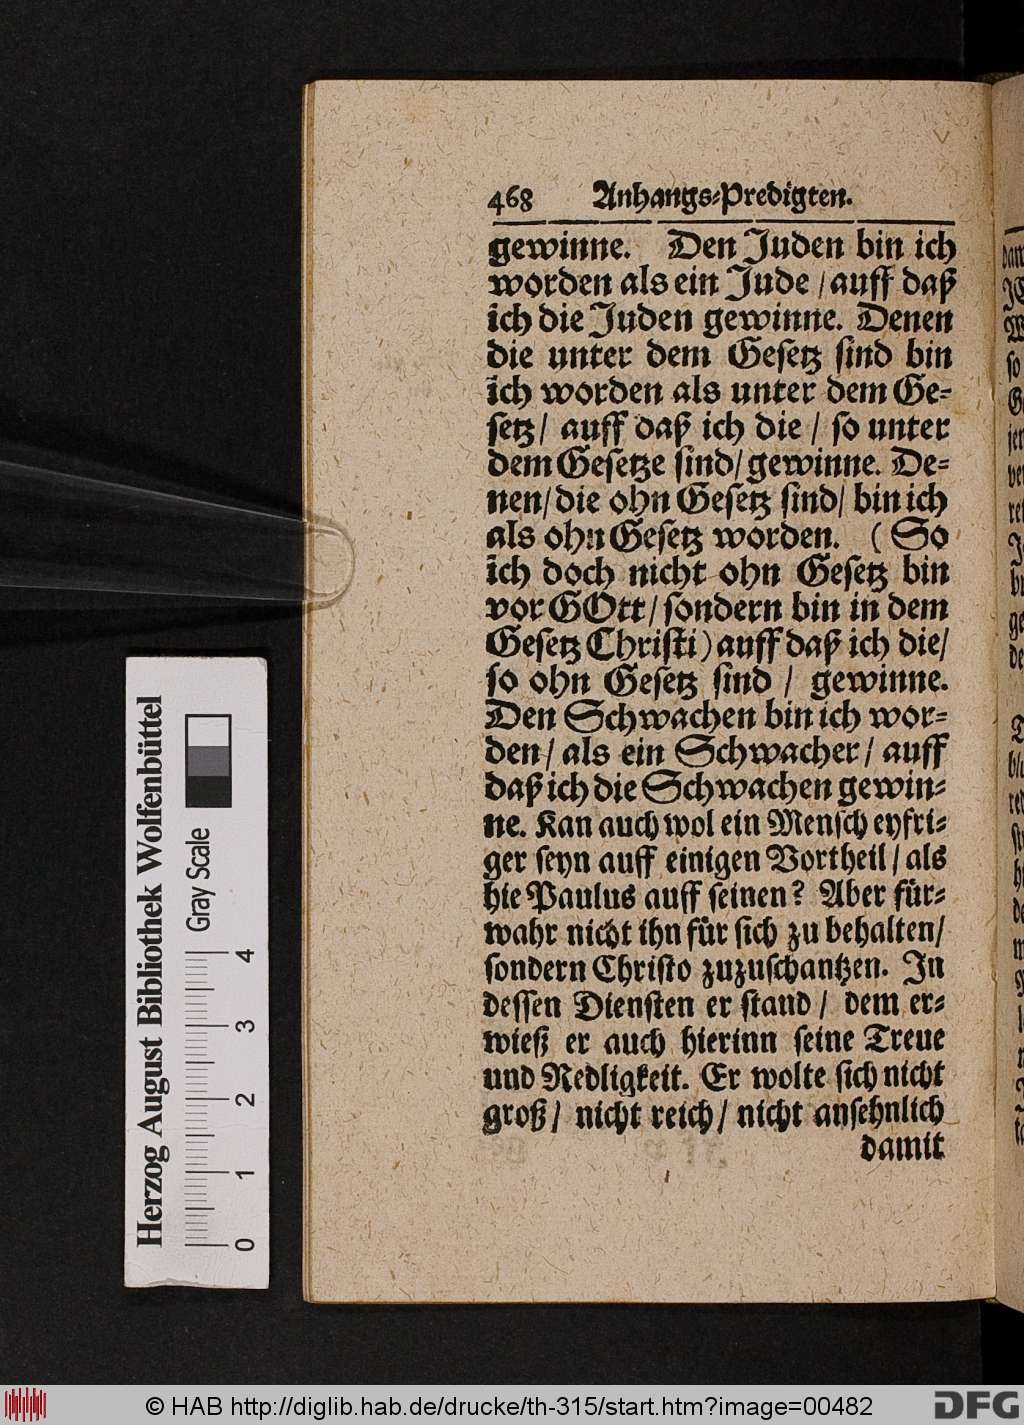 468 Anhangs-Predigten.
gewinne. Den Juden bin ich
worden als ein Jude / auff daß
ich die Juden gewinne. Denen
die unter dem Gesetz sind bin
ich worden als unter dem Ge-
setz / auff daß ich die / so unter
dem Gesetze sind / gewinne. De-
nen / die ohn Gesetz sind / bin ich
als ohn Gesetz worden. ( So
ich doch nicht ohn Gesetz bin
vor GOtt / sondern bin in dem
Gesetz Christi ) auff daß ich die /
so ohn Gesetz sind / gewinne.
Den Schwachen bin ich wor-
den / als ein Schwacher / auff
daß ich die Schwachen gewin-
ne. Kan auch wol ein Mensch eyfri-
ger seyn auff einigen Vortheil / als
hie Paulus auff seinen? Aber für-
wahr nicht ihn für sich zu behalten /
sondern Christo zuzuschantzen. In
dessen Diensten er stand / dem er-
wieß er auch hierinn seine Treue
und Redligkeit. Er wolte sich nicht
groß / nicht reich / nicht ansehnlich
damit
Herzog August Bibliothek Wolfenbüttel
Gray Scale
0 1 2 3 4
© HAB http://diglib.hab.de/drucke/th-315/start.htm?image=00482
DFG